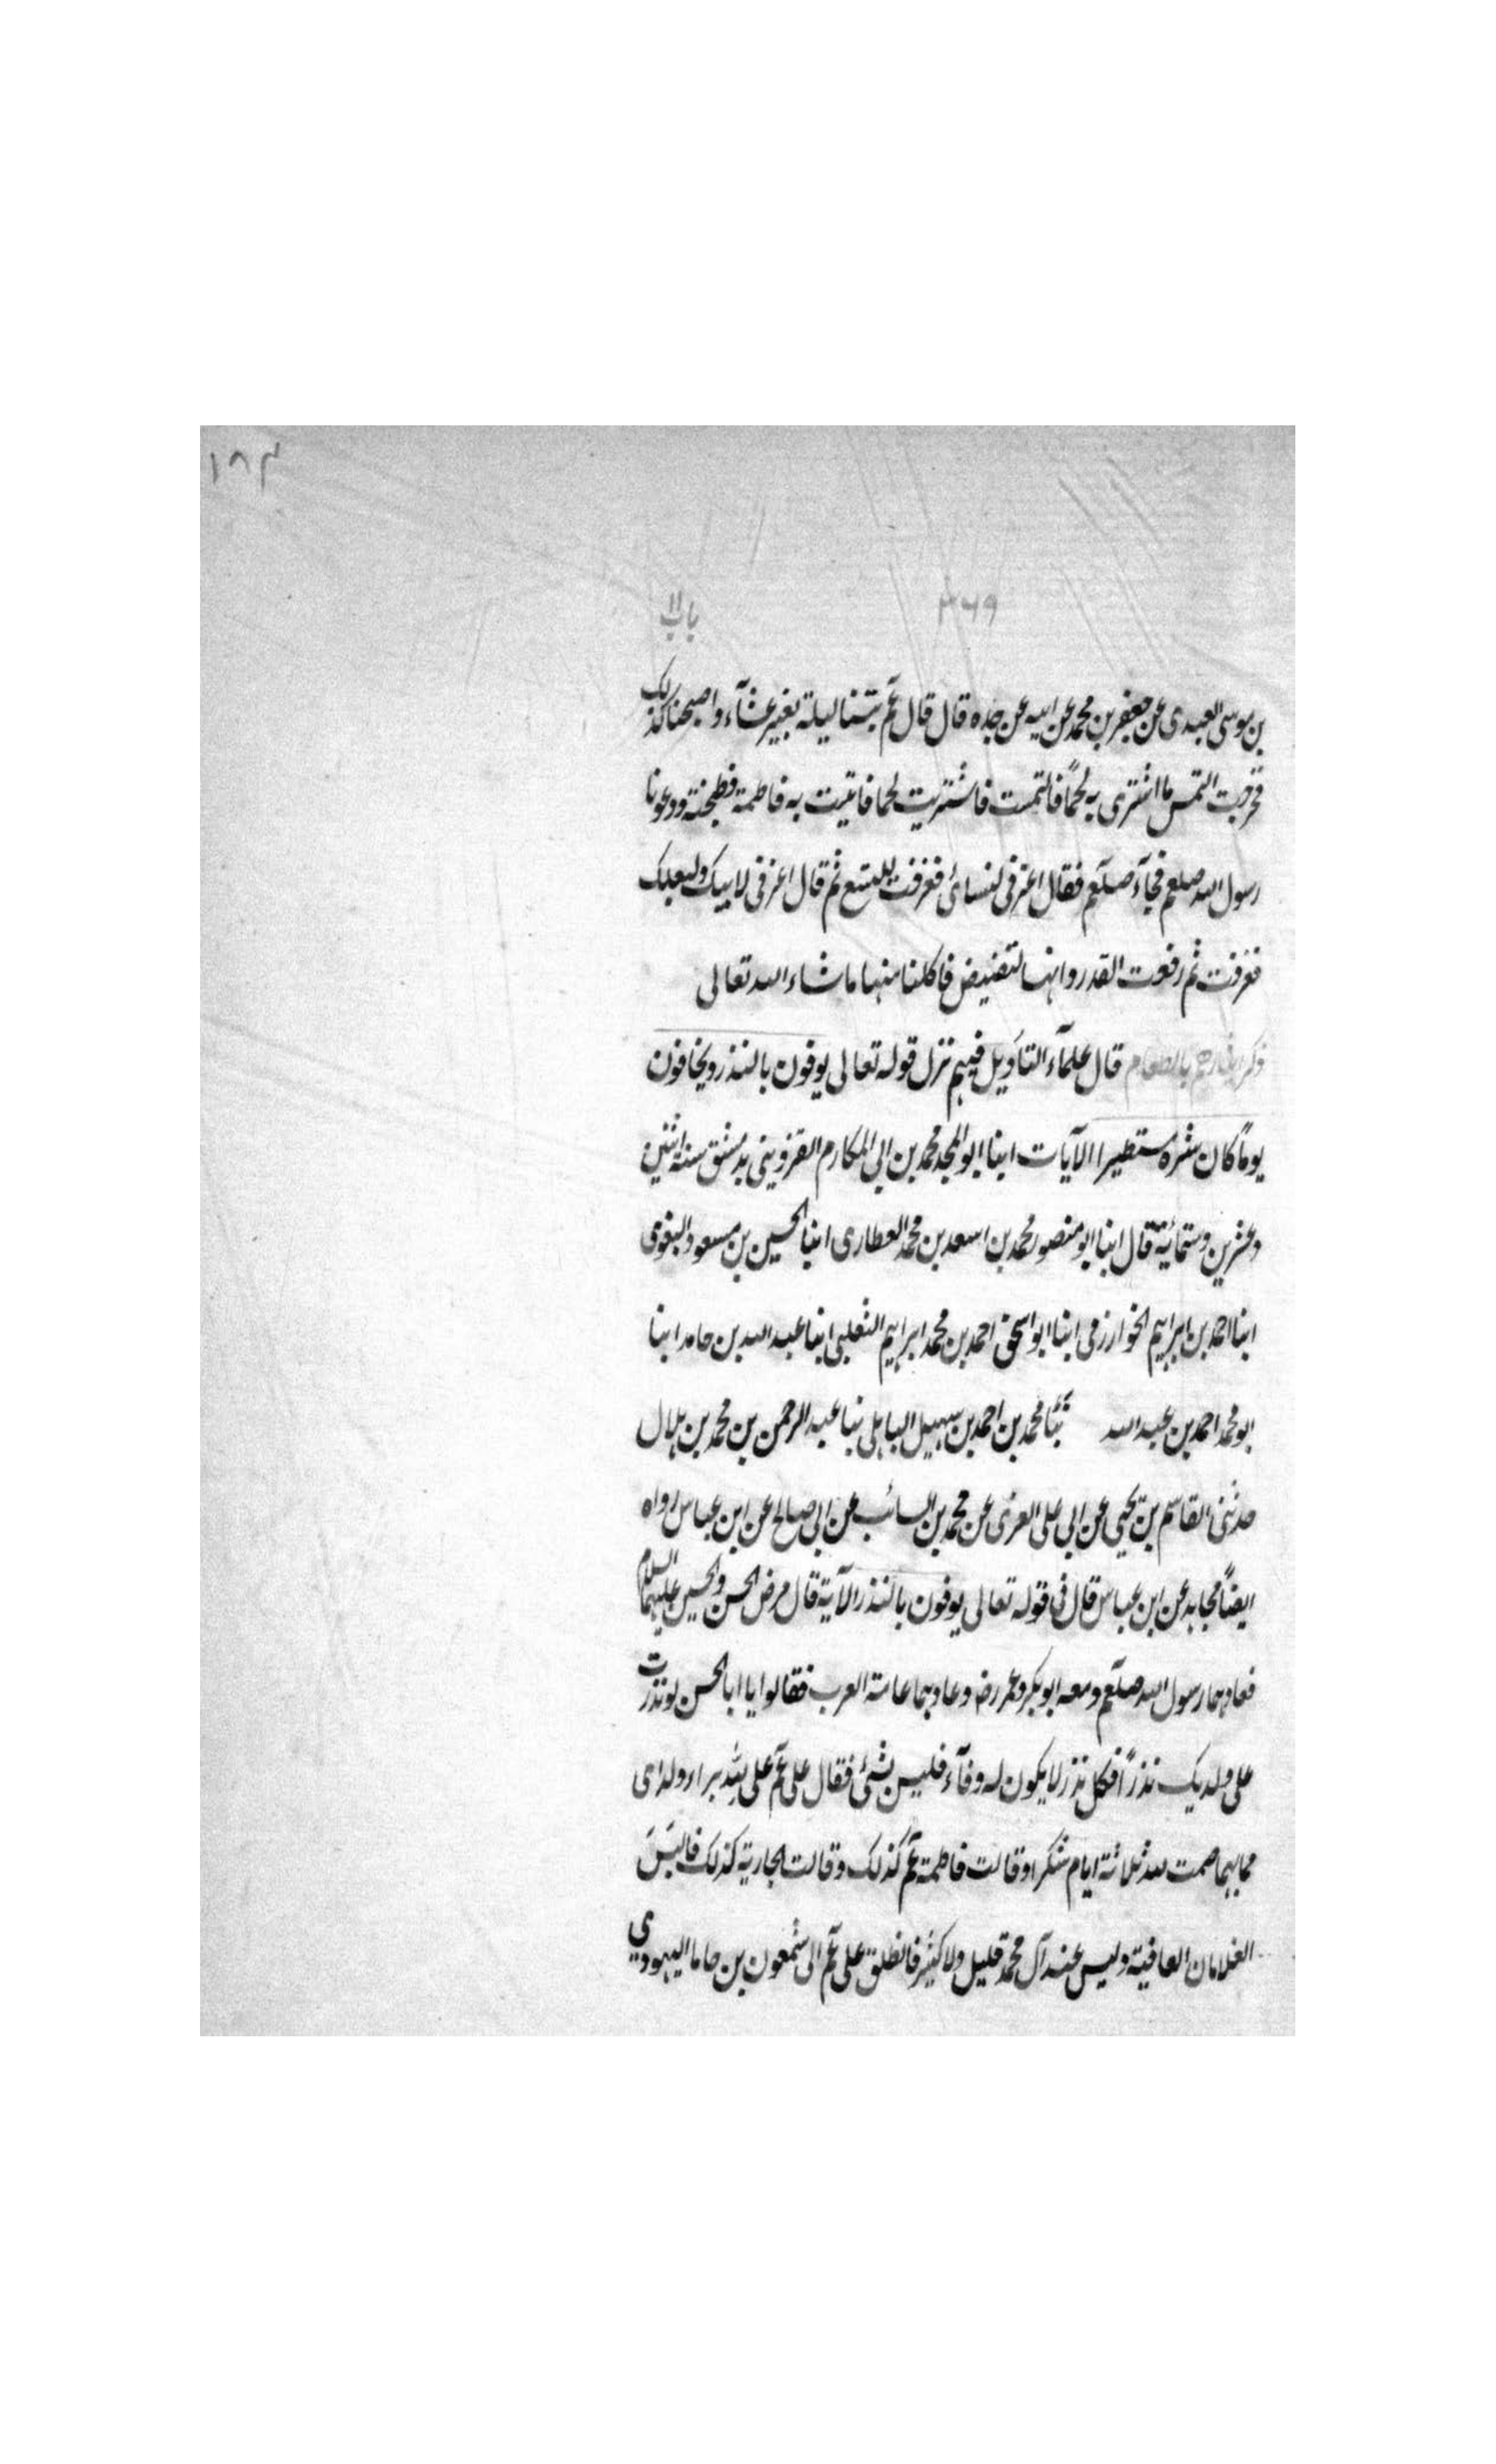 ١٨٣
٣٦٩
باب ١١
بن موسى العبدى عن جعفر بن محمد عن ابيه عن جده قال قال عم بتنا ليلة بغير عشآء واصبحنا كذلك
فخرجت التمس ما اشترى به لحمًا فالتمست فاشتريت لحما فاتيت به فاطمة فطبخته ودعونا
رسول الله صلعم فجآء صلعم فقال اغرفى لنسائى فغرفت للتسع ثم قال اغرفى لابيك ولبعلك
فغرفت ثم رفعت القدر وانها لتفيض فاكلنا منها ما شاء الله تعالى
ذكر ايثارهم بالطعام قال علمآء التأويل فيهم نزل قوله تعالى يوفون بالنذر ويخافون
يومًا كان شره مستطيرا الآيات ابنا ابو المجد محمد بن ابى المكارم القزوينى بدمشق سنة اثنين
وعشرين وستمائية قال ابنا ابو منصور محمد بن اسعد بن محمد العطارى ابنا الحسين بن مسعود البغوى
ابنا احمد بن ابراهيم الخوارزمى ابنا ابو اسحق احمد بن محمد ابراهيم الثعلبى ابنا عبد الله بن حامد ابنا
ابو محمد احمد بن عبد الله ثنا محمد بن احمد بن سهيل الباهلى ثنا عبد الرحمن بن محمد بن هلال
حدثنى القاسم بن يحيى عن ابى على العزى عن محمد بن السائب عن ابى صالح عن ابن عباس رواه
ايضًا مجاهد عن ابن عباس قال فى قوله تعالى يوفون بالنذر الآية قال مرض الحسن والحسين عليهما السلام
فعادهما رسول الله صلعم ومعه ابو بكر وعمر رض وعادهما عامة العرب فقالوا يا ابا الحسن لو نذرت
على ولديك نذرًا فكل نذر لا يكون له وفآء فليس بشئ فقال على عم على لله براء ولداى
مما بهما صمت لله ثلاثة ايام شكرا وقالت فاطمة عم كذلك وقالت الجارية كذلك فالبس
الغلامان العافية وليس عند آل محمد قليل ولا كثير فانطلق على عم الى شمعون بن حاما اليهودي